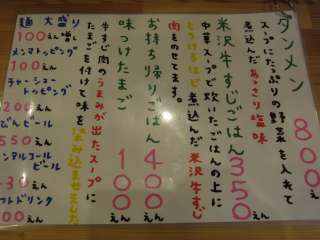 タンメン 800えん
スープにたっぷりの野菜を入れて
煮込んだあっさり塩味
米沢牛すじごはん 350えん
中華スープで炊いたごはんの上に
とろけるほど煮込んだ米沢牛すじ
肉をのせてます。
お持ち帰りごはん 400えん
味つけたまご 100えん
牛すじ肉のうまみが出たスープに
たまごを付けて味を染み込ませました
麺大盛り
100えん増し
メンマトッピング
100えん
チャーシュー
トッピング
200えん
びんビール
550えん
ンアルコール
ビール
430えん
フトドリンク
100えん